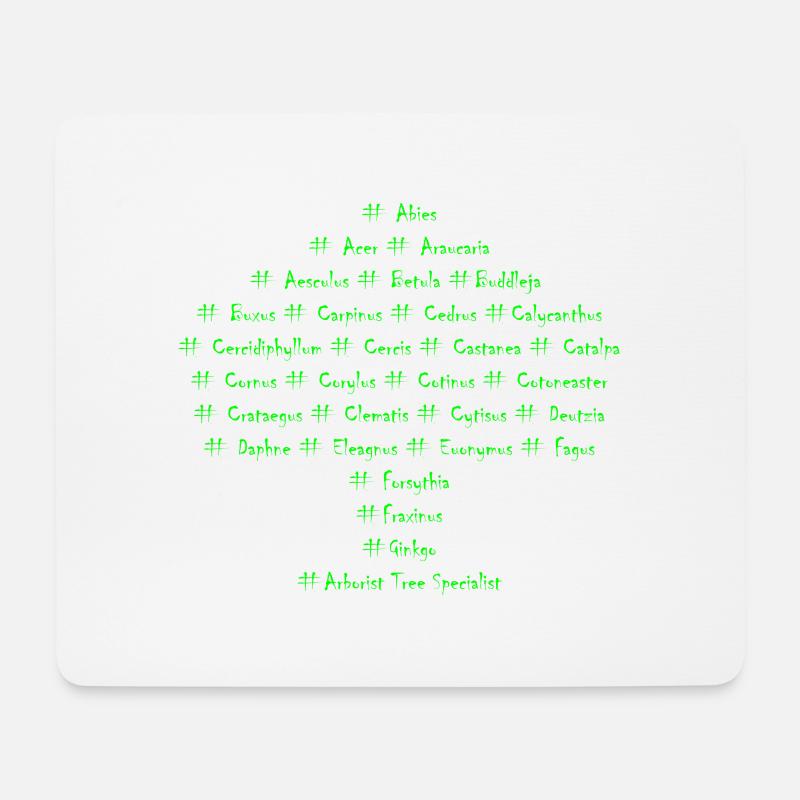 # Abies
# Acer # Araucaria
# Aesculus # Betula #Buddleja
# Buxus # Carpinus # Cedrus #Calycanthus
# Cercidiphyllum # Cercis # Castanea # Catalpa
# Cornus # Corylus # Cotinus # Cotoneaster
# Crataegus # Clematis # Cytisus # Deutzia
# Daphne # Eleagnus # Euonymus # Fagus
# Forsythia
#Fraxinus
#Ginkgo
#Arborist Tree Specialist